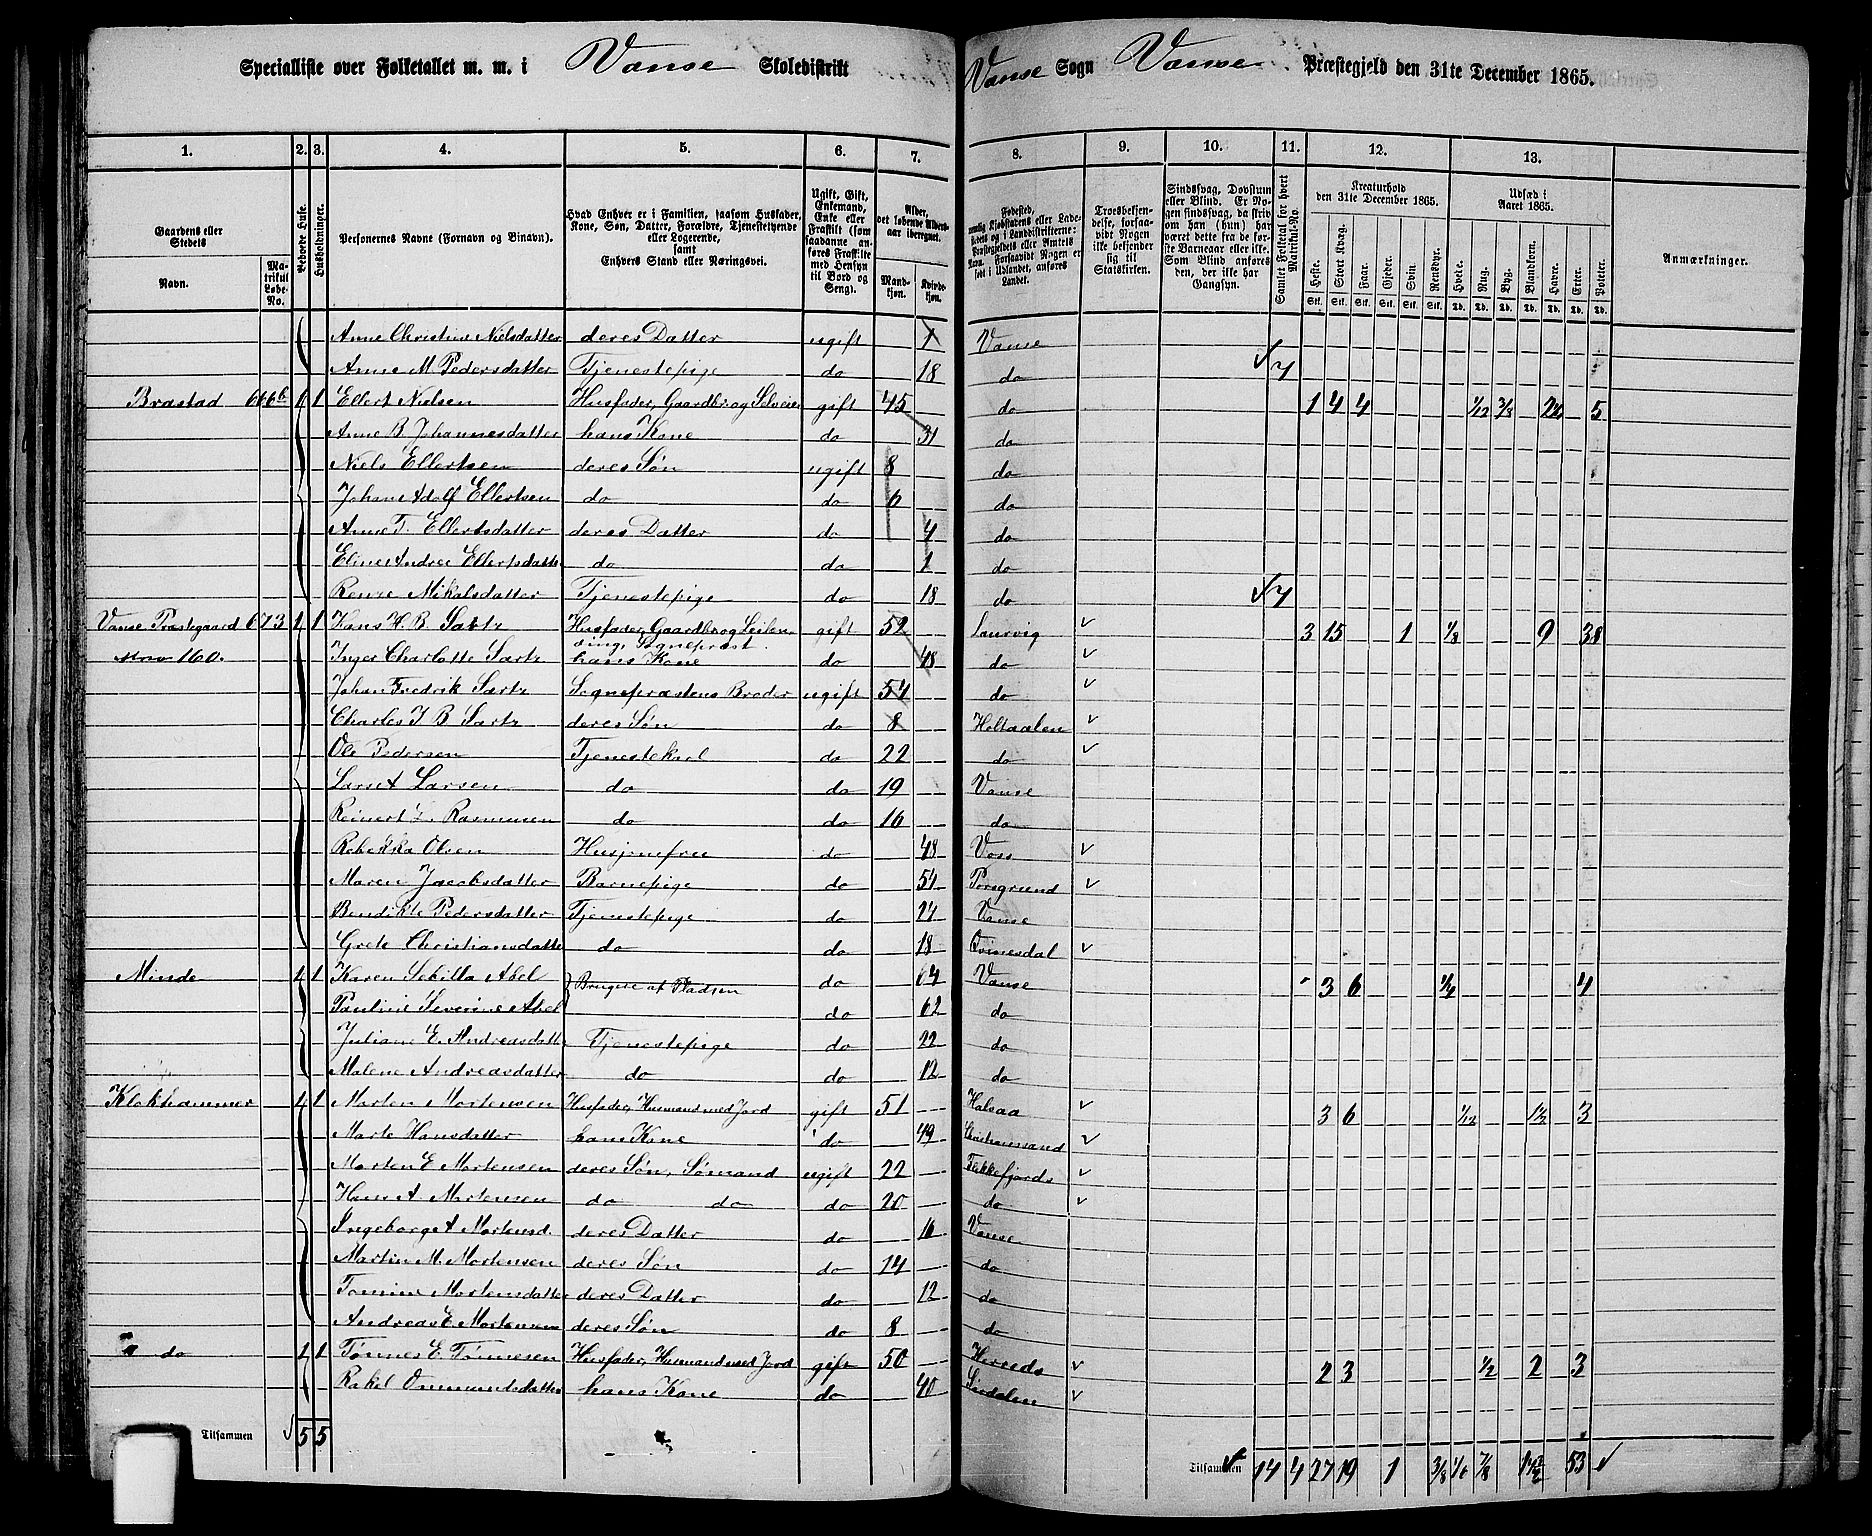 Specialliste over Folketallet m. m. i Vanse Skoledistrikt Vanse Sogn Vanse Præstegjeld den 31te December 1865.
1. 2. 3. 4. 5. 6. 7. 8. 9. 10. 11. 12. 13.
Gaardens eller Stedets
Navn.
Matrikul Løbe-No.
Beboede Huse.
Husholdninger.
Personernes Navne (Fornavn og Binavn).
Hvad Enhver er i Familien, saasom Husfader, Kone, Søn, Datter, Forældre, Tjenestetyende eller Logerende,
samt
Enhvers Stand eller Næringsvei.
Ugift, Gift, Enkemand, Enke eller Fraskilt (som saadanne anføres Fraskilte med Hensyn til Bord og Seng).
Alder, det løbende Alders-aar iberegnet.
Mandkjøn.
Kvindekjøn.
Fødested,
Troesbekjendelse, forsaavidt Nogen ikke bekjender sig til Statskirken.
Sindssvag, Døvstum eller Blind. Er Nogen sindssvag, da skrives om han (hun) har været dette fra de første Barneaar eller ikke. Som Blind anføres den, der ikke har Gangsyn.
Samlet Folketal for hvert Matrikul-No.
Kreaturhold den 31te December 1865.
Heste. Stort Kvæg. Faar. Gjeder. Svin. Rensdyr.
Udsæd i Aaret 1865.
Hvede. Rug. Byg. Blandkorn. Havre. Erter. Poteter.
Anmærkninger.
Anne Christine Nielsdatter deres Datter ugift 1 Vanse
Anne M Pedersdatter Tjenestepige do 18 do 7
Brastad 666b 1 1 Ellert Nielsen Husfader, Gaardbr og Selveier gift 45 do 1 4 4 1/12 2/3 2 1/2 5
Anne B Johannesdatter hans Kone do 31 do
Niels Ellertsen deres Søn ugift 8 do
Johan Adolf Ellertsen do do 6 do
Anne T. Ellertsdatter deres Datter do 4 do
Eline Andrea Ellertsdatter do do 1 do
Mikalsdatter Tjenestepige do 18 do 7
Vanse Præstegaard 673 1 1 Hans H. B. Sartz Husfader, Gaardbr og Leilending, Sogneprest gift 52 Laurvig 3 15 1 1/8 9 38
160. Inger Charlotte Sartz hans Kone do 48 do
Johan Fredrik Sartz Sogneprestens Broder ugift 54 do
Charles J B Sartz deres Søn do 8 Holtaalen
Ole Pedersen Tjenestekarl do 22 do
Larsen do do 19 Vanse
Reinert L. Rasmusen do do 16 do
Rebekka Olsen Husjomfru do 48 Voss
Maren Jacobsdatter Barnepige do 54 Porsgrund
Bendikte Pedersdatter Tjenestepige do 24 Vanse
Grete Christiansdatter do do 18 Qvinesdal
Minde 1 1 Karen Sebilla Abel Brugere af Pladsen do 64 Vanse 3 6 1/4 4
Pauline Severine Abel do 62 do
Juliane E. Andreasdatter Tjenestepige do 22 do
Malene Andreasdatter do do 12 do
Klokhammer 1 1 Morten Mortensen Husfader, Husmand med Jord gift 51 Halsaa 3 6 1/12 1 1/2 3
Marte Hansdatter hans Kone do 49 Christianssand
Morten E Mortensen deres Søn, Sømand ugift 22 Flekkefjord
Hans A. Mortensen do do do 20 do
Ingeborg A Mortensd. deres Datter do 16 Vanse
Martin M. Mortensen deres Søn do 14 do
Mortensdatter deres Datter do 12 do
Andreas E. Mortensen deres Søn do 8 do
do 1 1 Tønnes E. Tønnesen Husfader, Husmand med Jord gift 50 Herreds 2 3 1/2 2 3
Rakel Ommundsdatter hans Kone do 40 Siredalen
Tilsammen 5 5 Tilsammen 14 4 27 19 1 3/8 1/6 7/8 53